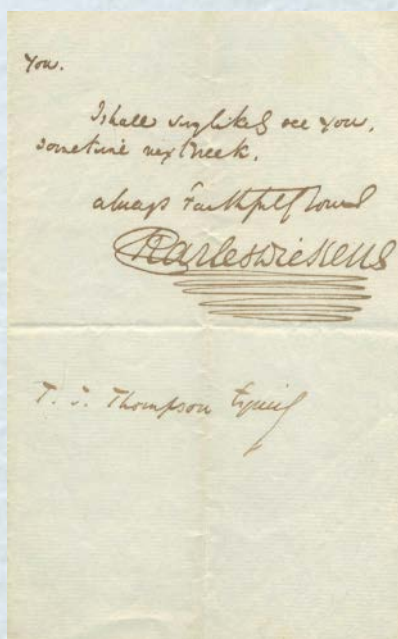 You.
I shall very likely see you,
sometime next week.
always Faithfully Yours
Charles Dickens
T. J. Thompson Esquire